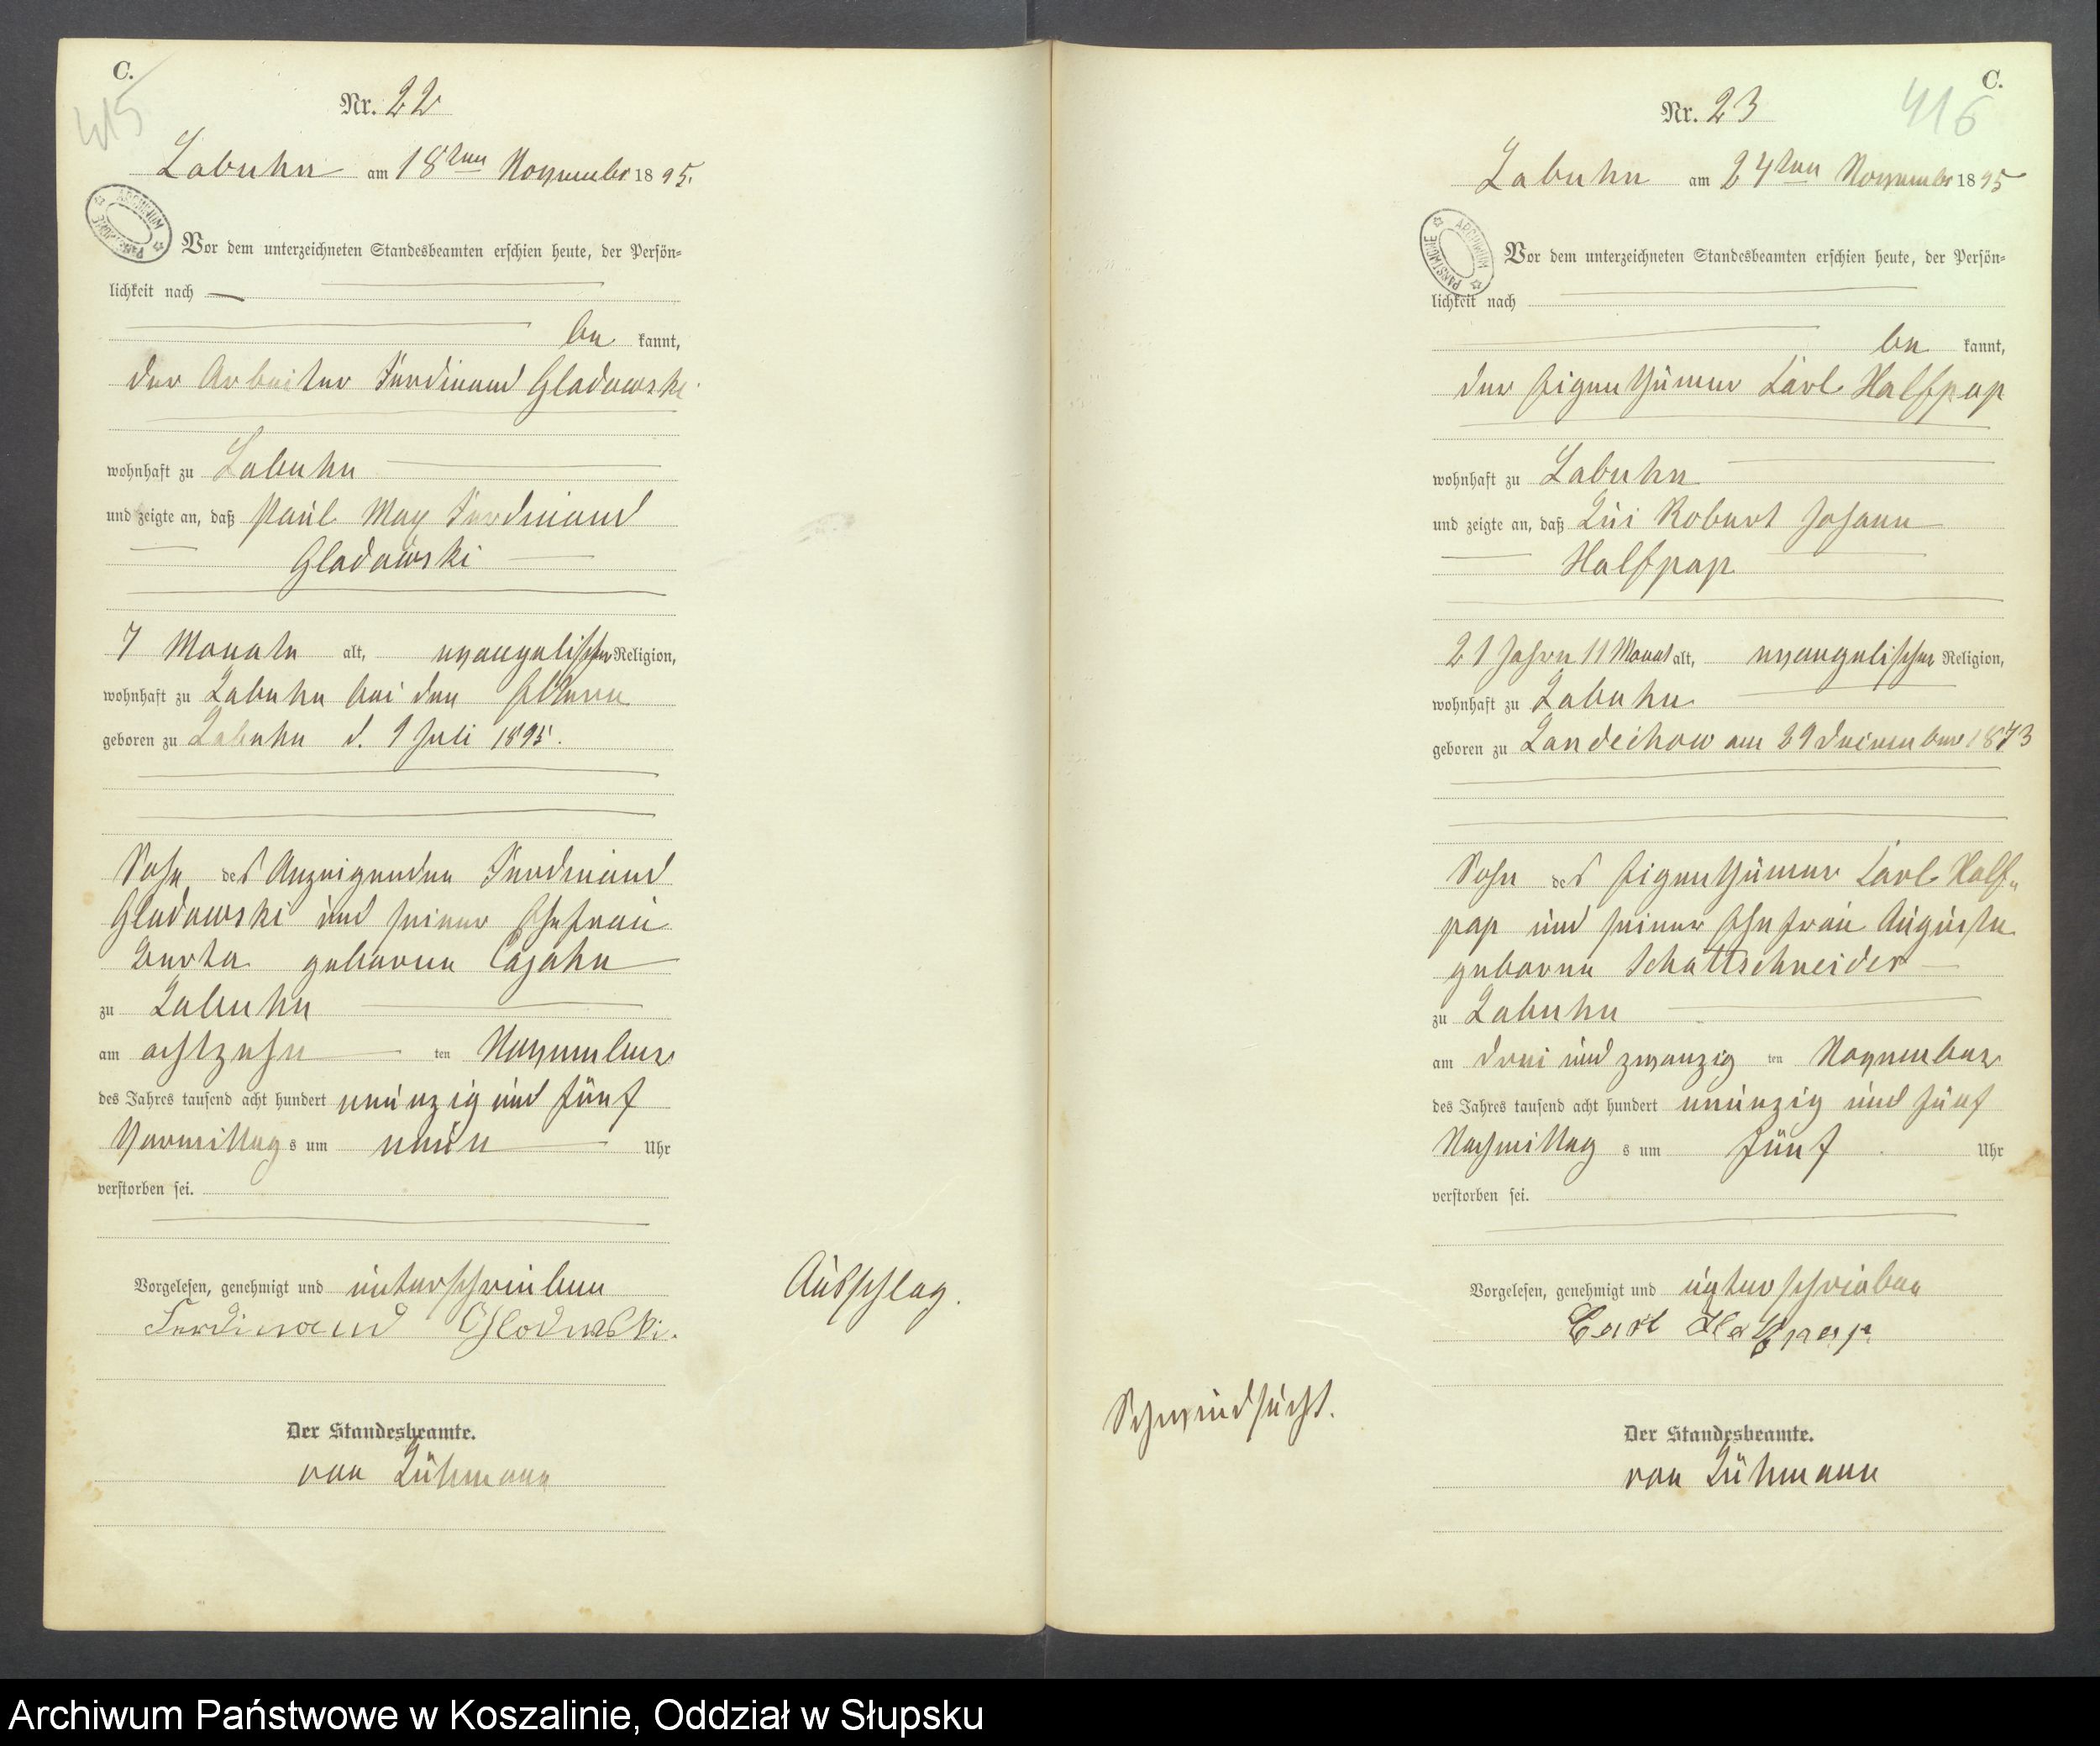 C.
415
Nr. 22
Labuhn am 18ten November 1895.
ARCHIWUM PAŃSTWOWE
Vor dem unterzeichneten Standesbeamten erschien heute, der Persön-
lichkeit nach
be kannt,
der Arbeiter Ferdinand Gladowski
wohnhaft zu Labuhn
und zeigte an, daß Paul Max Ferdinand
Gladowski
7 Monate alt, evangelischer Religion,
wohnhaft zu Labuhn bei den Eltern
geboren zu Labuhn d. 1 Juli 1895.
Sohn des Anzeigenden Ferdinand
Gladowski und seiner Ehefrau
Berta geborene
zu Labuhn
am achtzehn ten November
des Jahres tausend acht hundert neunzig und fünf
Vormittag s um neun Uhr
verstorben sei.
Vorgelesen, genehmigt und unterschrieben
Ferdinand Gladowski.
Der Standesbeamte.
von Lühmann
Ausschlag.
C.
416
Nr. 23
Labuhn am 24ten November 1895
ARCHIWUM PAŃSTWOWE
Vor dem unterzeichneten Standesbeamten erschien heute, der Persön-
lichkeit nach
be kannt,
der Eigenthümer Carl Halfpap
wohnhaft zu Labuhn
und zeigte an, daß Robert Johann
Halfpap
21 Jahre 11 Monat alt, evangelischer Religion,
wohnhaft zu Labuhn
geboren zu Landechow am 29 Dezember 1873
Sohn des Eigenthümer Carl Half-
pap und seiner Ehefrau Auguste
geborene Schattschneider
zu Labuhn
am drei und zwanzig ten November
des Jahres tausend acht hundert neunzig und fünf
Nachmittag s um fünf Uhr
verstorben sei.
Vorgelesen, genehmigt und unterschrieben
Carl Halfpap
Schwindsucht.
Der Standesbeamte.
von Lühmann
Archiwum Państwowe w Koszalinie, Oddział w Słupsku